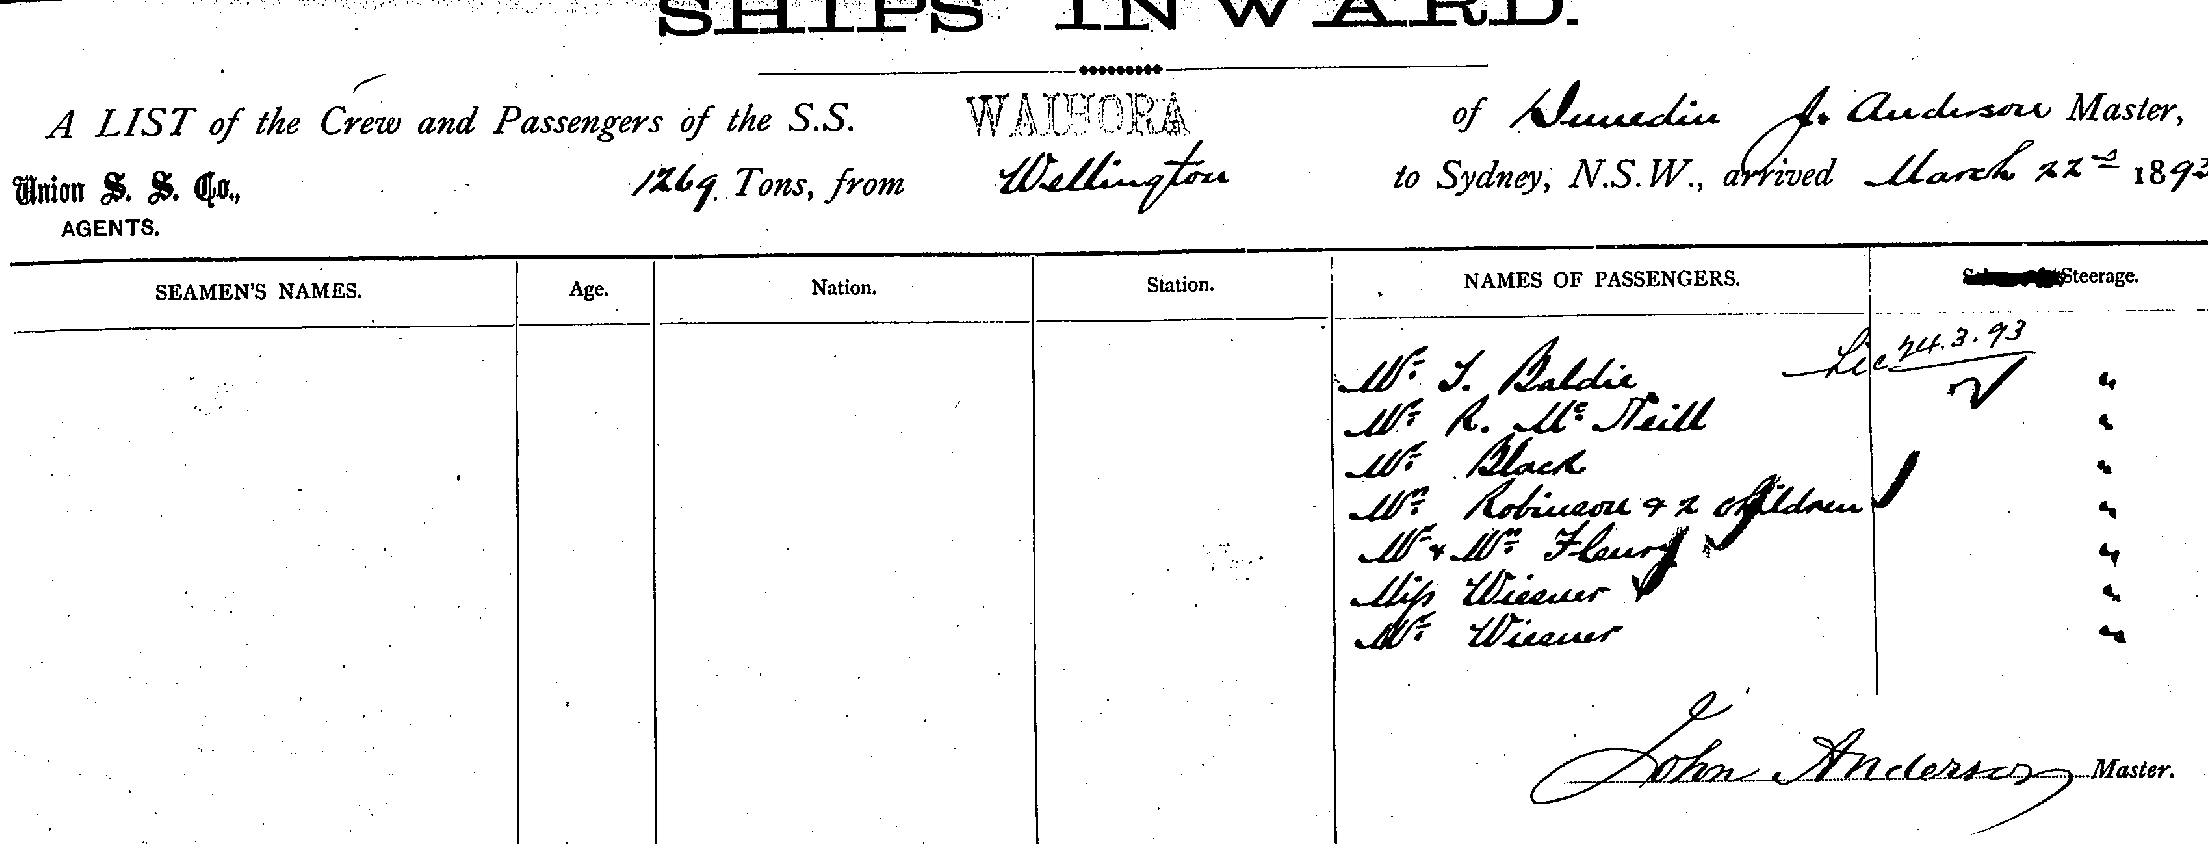 SHIPS INWARD.
A LIST of the Crew and Passengers of the S.S. WAIHORA of Dunedin J. Anderson Master,
Union S. S. Co., 1269 Tons, from Wellington to Sydney, N.S.W., arrived March 22nd 1893
AGENTS.
SEAMEN'S NAMES. Age. Nation. Station. NAMES OF PASSENGERS. Steerage.
24.3.93
Mr. T. Baldie "
Mr. R. McNeill "
Mr. Black "
Mrs. Robinson & 2 children "
Mr & Mrs. Fleury "
Miss Wiesner "
Mr. Wiesner "
John Anderson Master.